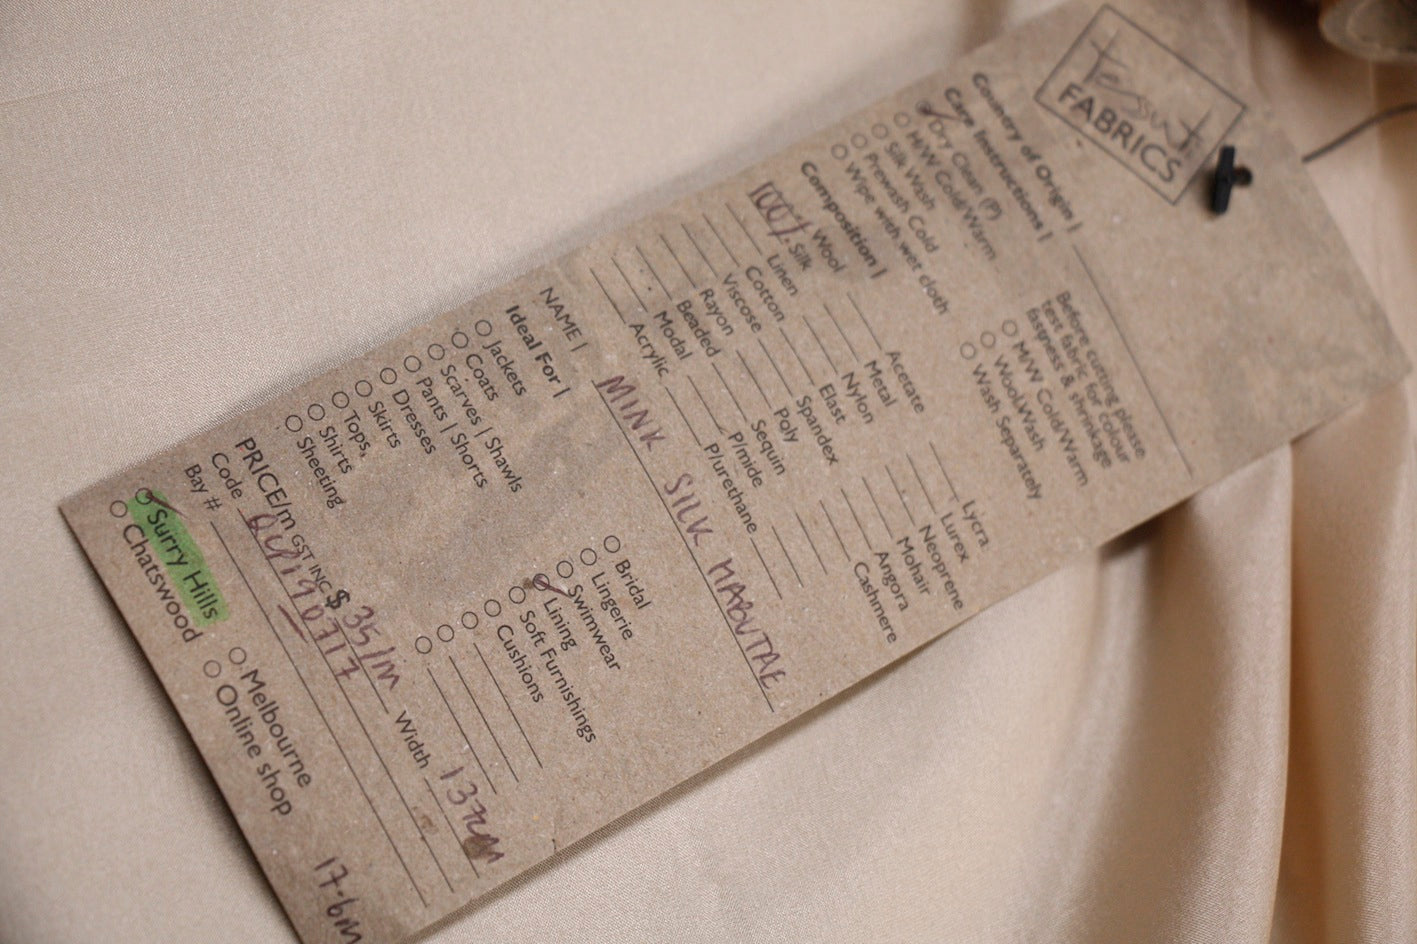 Tessuti
FABRICS
Country of Origin |
Care Instructions |
Before cutting please
test fabric for colour
fastness & shrinkage
Dry Clean (P)
H/W Cold/Warm
Silk Wash
Prewash Cold
Wipe with wet cloth
M/W Cold/Warm
Wool Wash
Wash Separately
Composition |
Wool
100% Silk
Linen
Cotton
Viscose
Rayon
Beaded
Modal
Acrylic
Acetate
Metal
Nylon
Elast
Spandex
Poly
Sequin
P/mide
P/urethane
Lycra
Lurex
Neoprene
Mohair
Angora
Cashmere
NAME | MINK SILK HABUTAE
Ideal For |
Jackets
Coats
Scarves | Shawls
Pants | Shorts
Dresses
Skirts
Tops
Shirts
Sheeting
Bridal
Lingerie
Swimwear
Lining
Soft Furnishings
Cushions
PRICE/m GST INC $ 35/m Width 137cm
Code
Bay #
Surry Hills
Chatswood
Melbourne
Online shop
17.6m